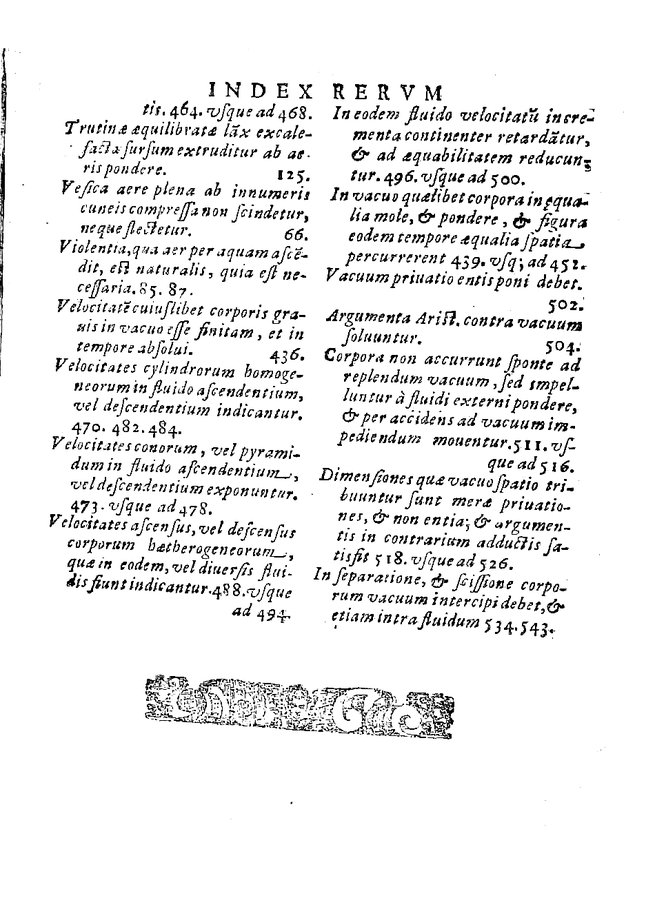 INDEX RERVM
tis. 464. vſque ad 468.
Trutinæ æquilibratæ lāx excale-
facta ſurſum extruditur ab ae-
ris pondere. 125.
Veſica aere plena ab innumeris
cuneis compreſſa non ſcindetur,
neque flectetur. 66.
Violentia, qua aer per aquam aſcē-
dit, eſt naturalis, quia eſt ne-
ceſſaria. 85. 87.
Velocitatē cuiuſlibet corporis gra-
uis in vacuo eſſe finitam, et in
tempore abſolui. 436.
Velocitates cylindrorum homoge-
neorum in fluido aſcendentium,
vel deſcendentium indicantur.
470. 482. 484.
Velocitates conorum, vel pyrami-
dum in fluido aſcendentium,
vel deſcendentium exponuntur.
473. vſque ad 478.
Velocitates aſcenſus, vel deſcenſus
corporum hætherogeneorum,
quæ in eodem, vel diuerſis flui-
dis fiunt indicantur. 488. vſque
ad 494.
In eodem fluido velocitatū incre-
menta continenter retardātur,
& ad æquabilitatem reducun-
tur. 496. vſque ad 500.
In vacuo quælibet corpora inęqua-
lia mole, & pondere, & figura
eodem tempore æqualia ſpatia
percurrerent 439. vſq; ad 452.
Vacuum priuatio entis poni debet.
502.
Argumenta Ariſt. contra vacuum
ſoluuntur. 504.
Corpora non accurrunt ſponte ad
replendum vacuum, ſed impel-
luntur à fluidi externi pondere,
& per accidens ad vacuum im-
pediendum mouentur. 511. vſ-
que ad 516.
Dimenſiones quæ vacuo ſpatio tri-
buuntur ſunt meræ priuatio-
nes, & non entia; & argumen-
tis in contrarium adductis ſa-
tisfit 518. vſque ad 526.
In ſeparatione, & ſciſſione corpo-
rum vacuum intercipi debet, &
etiam intra fluidum 534. 543.